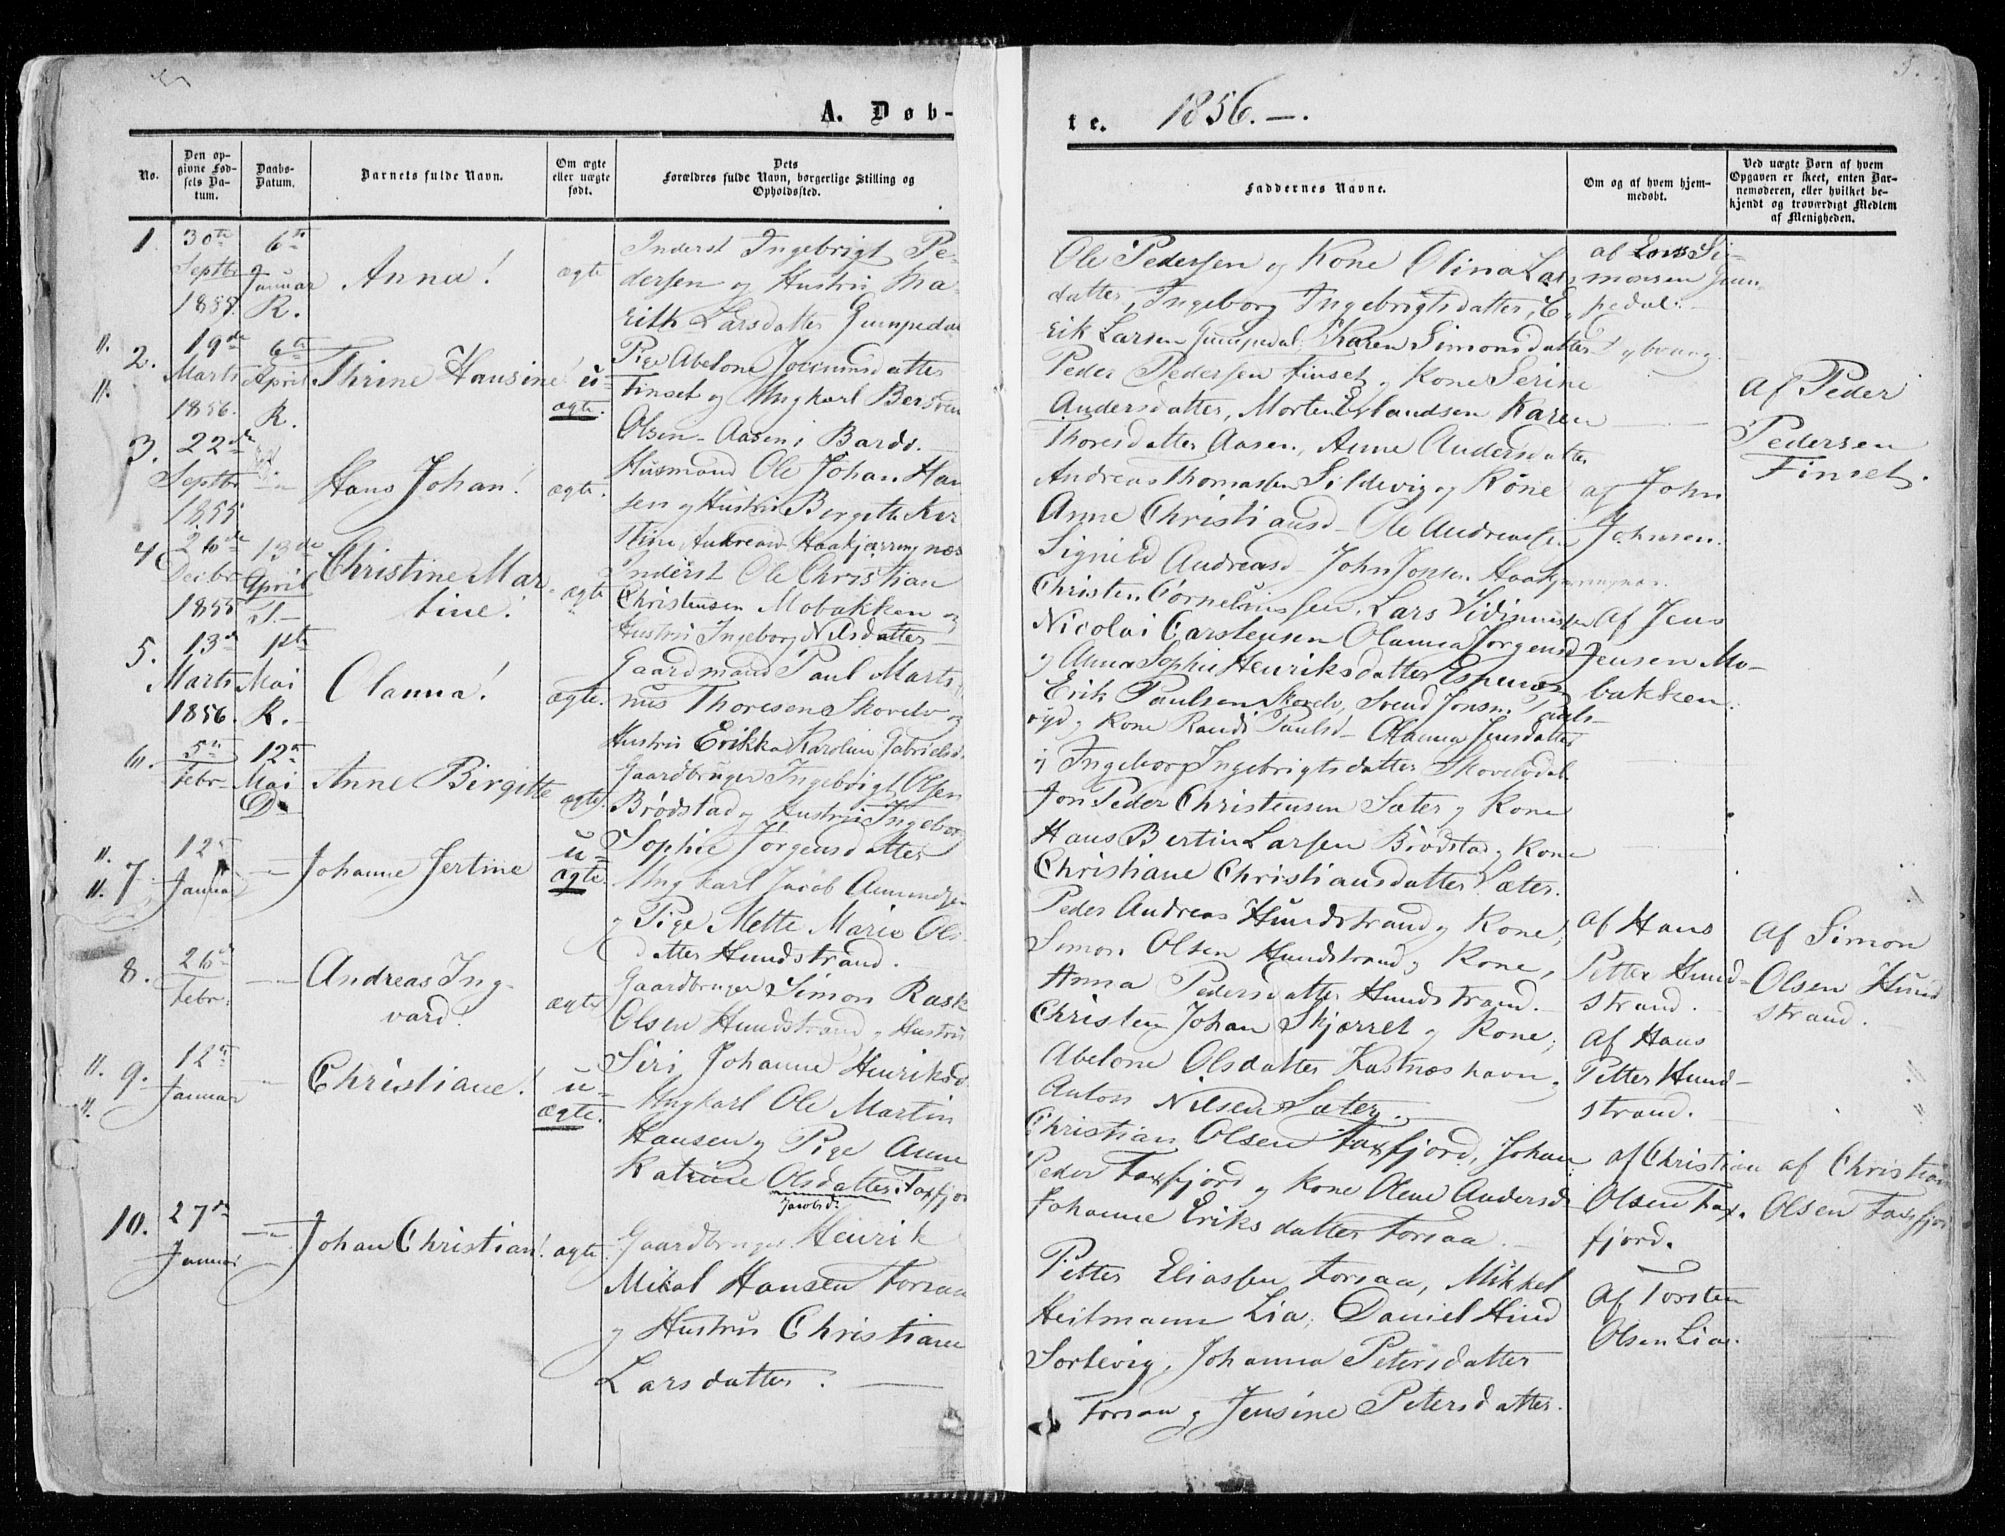 A. Døb-
te. 1856.—.
No.
Den opgivne Fødsels Datum.
Daabs-Datum.
Barnets fulde Navn.
Om ægte eller uægte født.
Dets Forældres fulde Navn, borgerlige Stilling og Opholdssted.
Faddernes Navne.
Om og af hvem hjemmedøbt.
Ved uægte Born af hvem Opgaven er skeet, enten Barnemoderen, eller hvilket bekjendt og troværdigt Medlem af Menigheden.
1.
30te Septbr 1855.
6te Januar R.
Anna!
ægte
Inderst Ingebrigt Pe-
dersen og Hustru Ma-
Larsdatter
Ole Pedersen og Kone Olina Lars
datter, Ingeborg Ingebrigtsdatter, E,
Erik Larsen Karen Simonsdatter
af Lars Si-
monsen
2.
19de Marts 1856.
6te April R.
Thrine Hansine!
u-
ægte.
Pige Abelone
Finset og Ungkarl
Olsen Aasen i Bardo.
Peder Pedersen Finset og Kone Serine
Andersdatter, Morten Erlandsen Karen
Thoresdatter Aasen, Anne Andersdatter
af Peder
Pedersen
Finset.
3.
22de Septbr 1855
Hans Johan!
ægte.
Husmand Ole Johan Han
sen og Hustru Bergitte Kir
stine
Andreas Thomassen Sildevig og Kone
Anne Christiansd Ole Andreassen
Signild Andreasd John Jonsen
af John
Johnsen.
4.
26de Decbr 1855
13de April
Christine Mar-
tine!
ægte
Inderst Ole Christian
Christensen Mobakken og
Hustru Ingeborg Nilsdatter
Christen Cornelinssen, Lars
Nicolai Carstensen Olanna Jörgensd
og Anna Sophie Henriksdatter Espenæs
af Jens
Jensen Mo-
bakken.
5.
13de Marts 1856.
1ste Mai K.
Olanna!
ægte.
Gaardmand Paul Marti
nus Thoresen Skovelv og
Hustru Erikka Karolina Gabrielsd.
Erik Paulsen Skovelv, Svend Jonsen
og Kone Randi Paulsd Olanna Jensdatter
og Ingeborg Ingebrigtsdatter
6.
5te Febr
12te Mai D.
Anne Birgitte
ægte.
Gaardbruger Ingebrigt Olsen
Brödstad og Hustru Ingeborg
Sophie Jörgensdatter
Jon Peder Christensen Sæter og Kone
Hans Bertin Larsen Brödstad og Kone
Christiane Christiansdatter Sæter.
7.
12te Januar
Johanne Jertine
u-
ægte
Ungkarl Jacob Amundsen
og Pige Mette Marie Ols-
datter Hundstrand.
Peder Andreas Hundstrand og Kone,
Simon Olsen Hundstrand og Kone,
Anna Pedersdatter Hundstrand.
af Hans
Petter Hund-
strand.
af Simon
Olsen Hund
strand.
8.
26de Febr.
Andreas Ing-
vard!
ægte
Gaardbruger Simon Rask
Olsen Hundstrand og Hustru
Siri Johanne Henriksd.
Christen Johan Skjærret og Kone,
Abelone Olsdatter Kastneshavn,
Anton Nilsen Sæter.
af Hans
Petter Hund-
strand.
9.
12te Januar
Christiane!
u-
ægte.
Ungkarl Ole Martin
Hansen og Pige Anne
Katrine Olsdatter Faxfjor
Jacobsd.
Christian Olsen Faxfjord, Johan
Peder Faxfjord og Kone Olene Andersd
Johanne Eriksdatter Forsaa.
af Christian
Olsen Fax-
fjord.
af Christian
Olsen Faxfjor
10.
27de Januar
Johan Christian!
ægte.
Gaardbruger Henrik
Mikal Hansen Forsaa
og Hustru Christiane
Larsdatter.
Petter Eliassen Forsaa, Mikkel
Heitmann Lia, Daniel Hind
Sorlevig, Johanna Petersdatter
Forsaa og Jensine Petersdatter.
af Torsten
Olsen Lia.